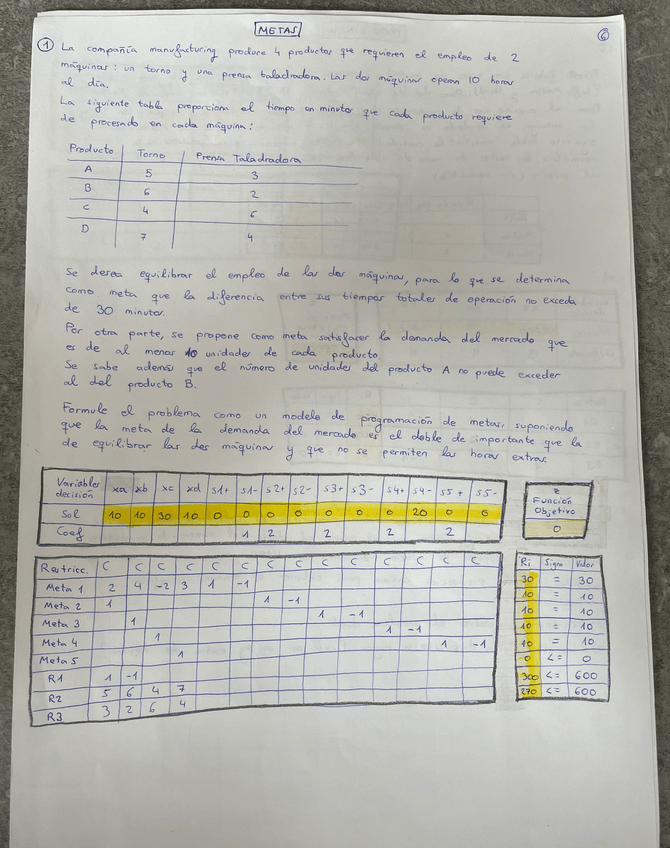 METAS
6
1 La compañía manufacturing produce 4 productos que requieren el empleo de 2
máquinas: un torno y una prensa taladradora. Las dos máquinas operan 10 horas
al día.
La siguiente tabla proporciona el tiempo en minutos que cada producto requiere
de procesado en cada máquina:
Producto Torno Prensa Taladradora
A 5 3
B 6 2
C 4 6
D 7 4
Se desea equilibrar el empleo de las dos máquinas, para lo que se determina
como meta que la diferencia entre sus tiempos totales de operación no exceda
de 30 minutos.
Por otra parte, se propone como meta satisfacer la demanda del mercado que
es de al menos 10 unidades de cada producto.
Se sabe además que el número de unidades del producto A no puede exceder
al del producto B.
Formule el problema como un modelo de programación de metas, suponiendo
que la meta de la demanda del mercado es el doble de importante que la
de equilibrar las dos máquinas y que no se permiten las horas extras.
Variables decisión xa xb xc xd s1+ s1- s2+ s2- s3+ s3- s4+ s4- s5+ s5- z Función Objetivo
Sol 10 10 30 10 0 0 0 0 0 0 0 20 0 0
Coef 1 2 2 2 2 0
Restricc. C C C C C C C C C C C C C C Ri Signo Valor
Meta 1 2 4 -2 3 1 -1 30 = 30
Meta 2 1 1 -1 10 = 10
Meta 3 1 1 -1 10 = 10
Meta 4 1 1 -1 10 = 10
Meta 5 1 1 -1 10 = 10
R1 1 -1 0 <= 0
R2 5 6 4 7 300 <= 600
R3 3 2 6 4 270 <= 600